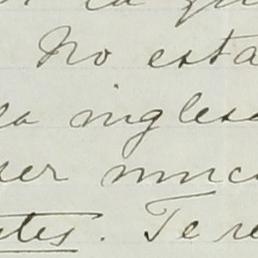 No esta
la inglesa
ser muc
tes. Te re